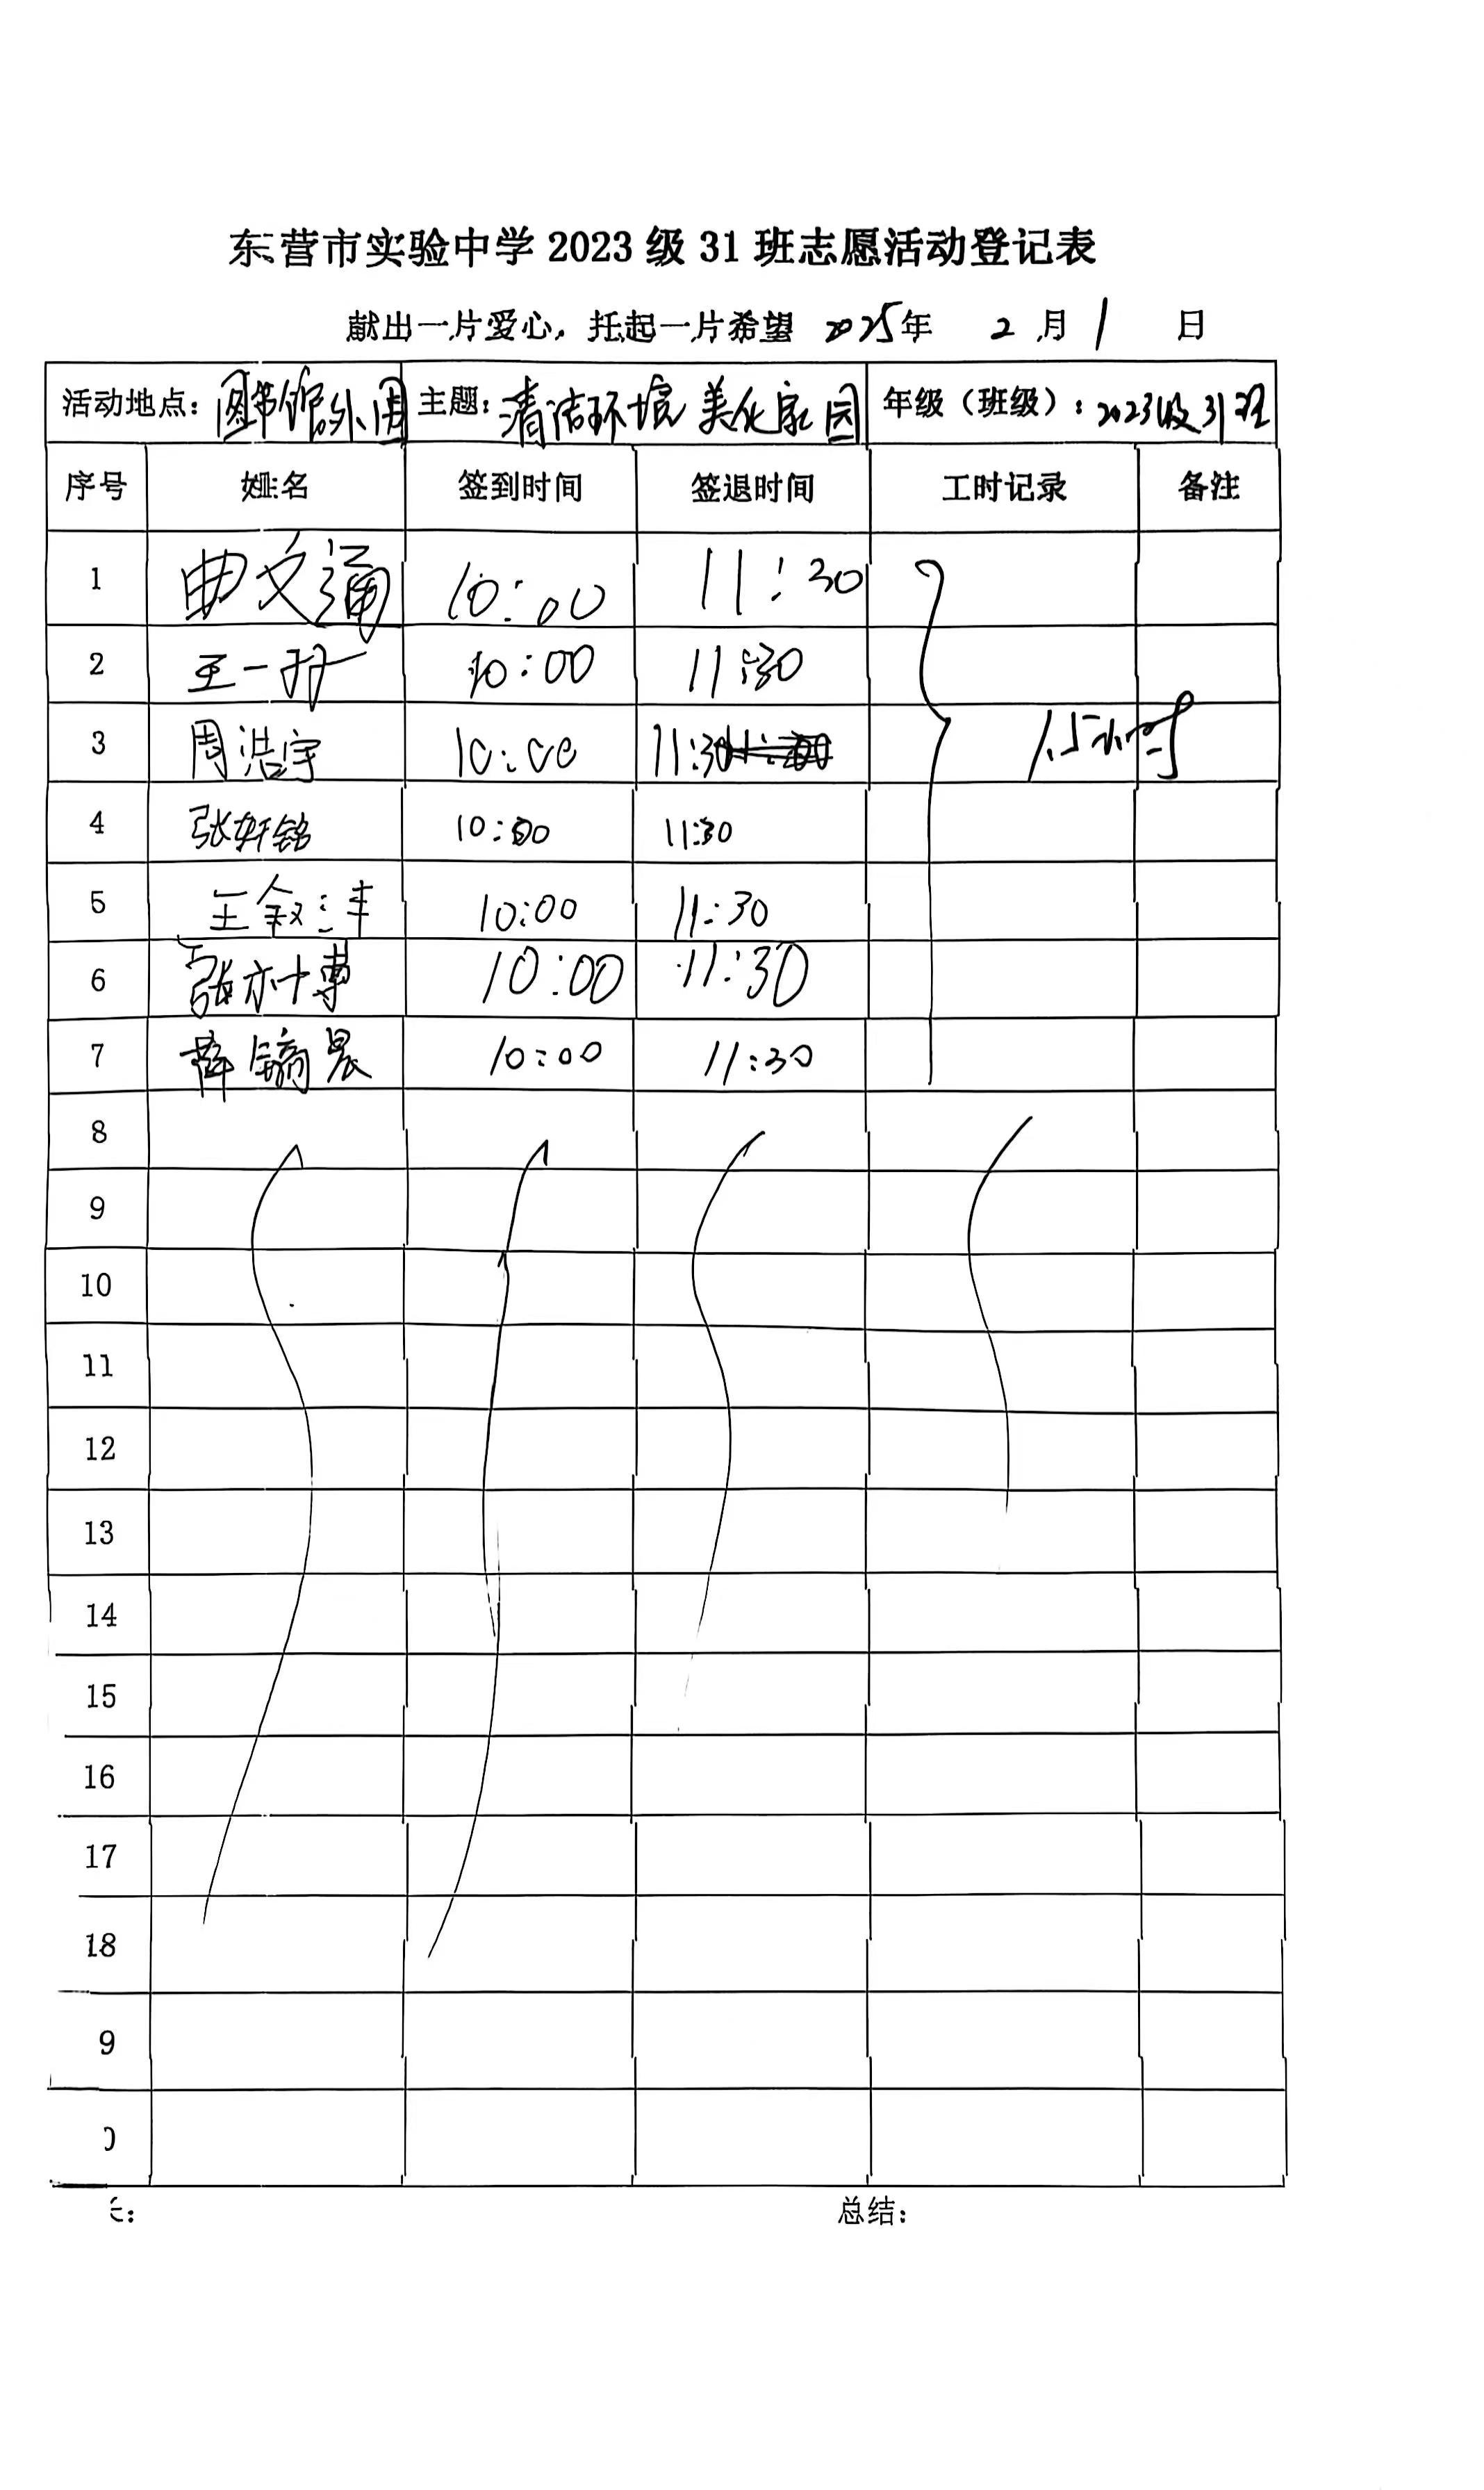 东营市实验中学 2023 级 31 班志愿活动登记表
献出一片爱心，托起一片希望 2025年 2 月 1 日
活动地点：图书馆外围 主题：清洁环境 美化家园 年级（班级）：2023级31班
序号 姓名 签到时间 签退时间 工时记录 备注
1 曲文通 10:00 11:30
2 王一 10:00 11:30
3 周浩宇 10:00 11:30 1.5小时
4 张轩铭 10:00 11:30
5 王叙沣 10:00 11:30
6 张博 10:00 11:30
7 薛镝晨 10:00 11:30
8
9
10
11
12
13
14
15
16
17
18
9
0
总结：